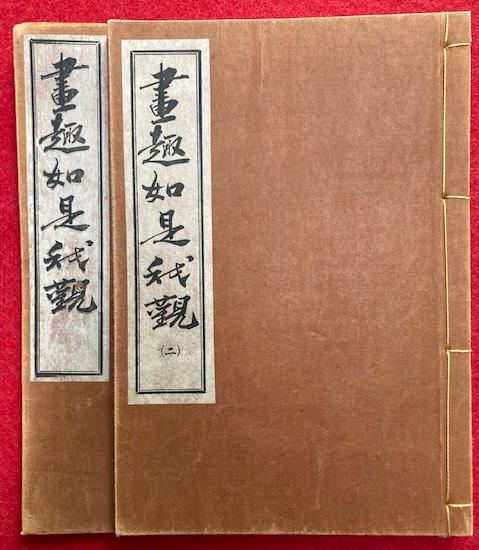 畫趣如是我觀
畫趣如是我觀
(二)